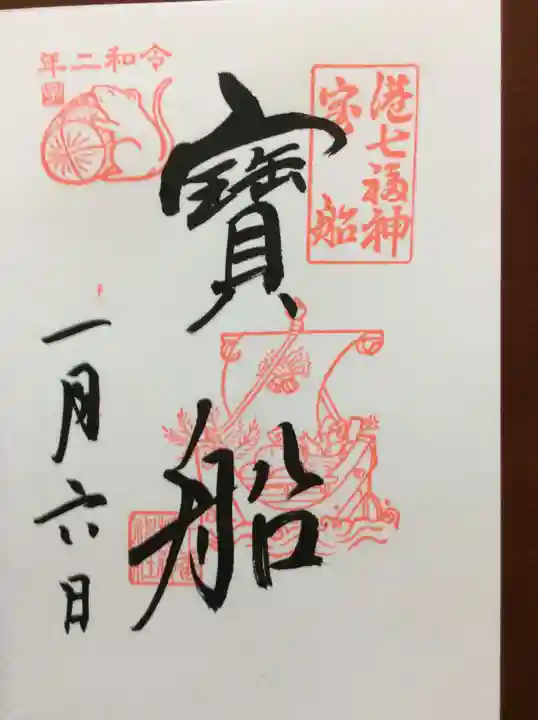 港七福神
宝船
寶船
令和二年
一月六日